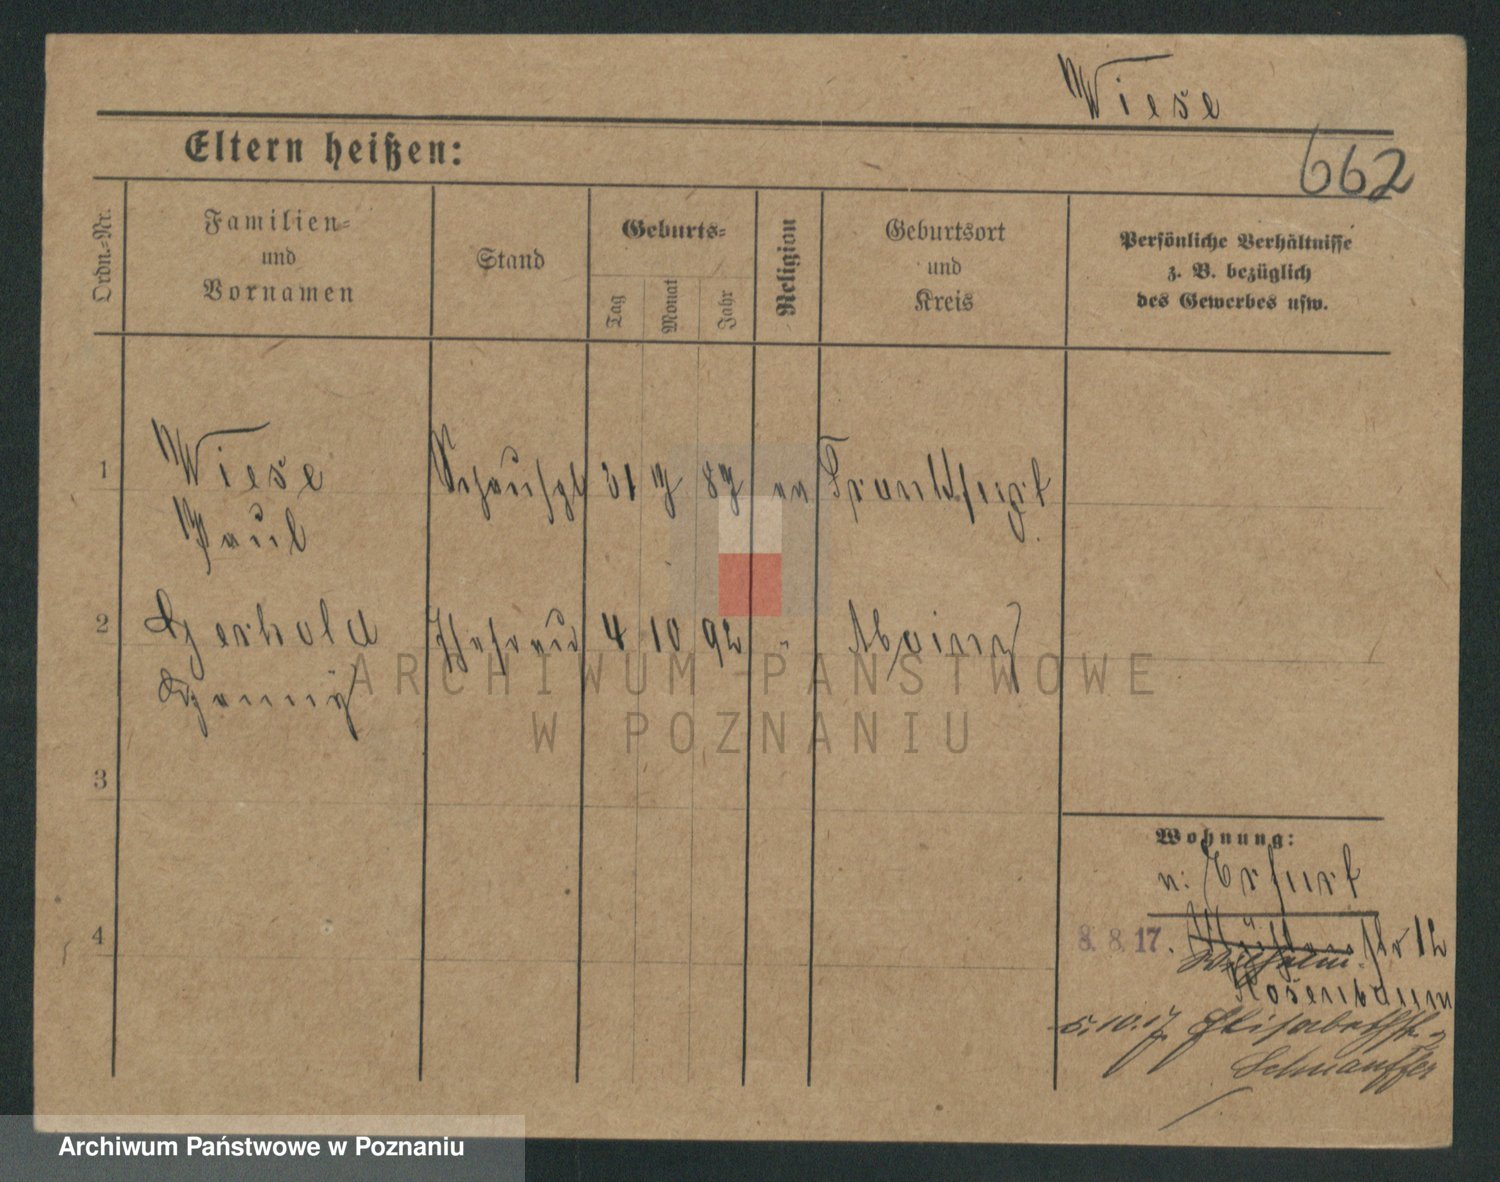 Wiese
662
Eltern heißen:
Ordn.-Nr.
Familien-
und
Vornamen
Stand
Geburts-
Tag
Monat
Jahr
Religion
Geburtsort
und
Kreis
Persönliche Verhältnisse
z. B. bezüglich
des Gewerbes usw.
1 Wiese 31 7 87 ev Frankfurt
Paul
2 Gerhold Ehefrau 4 10 92 " Mainz
Fanny
3
4
Wohnung:
n. Erfurt
8. 8. 17. str 12
Wilhelm
Rosenbaum
5.10.17 Elisabethstr. 2
Schnauffer
ARCHIWUM PAŃSTWOWE
W POZNANIU
Archiwum Państwowe w Poznaniu